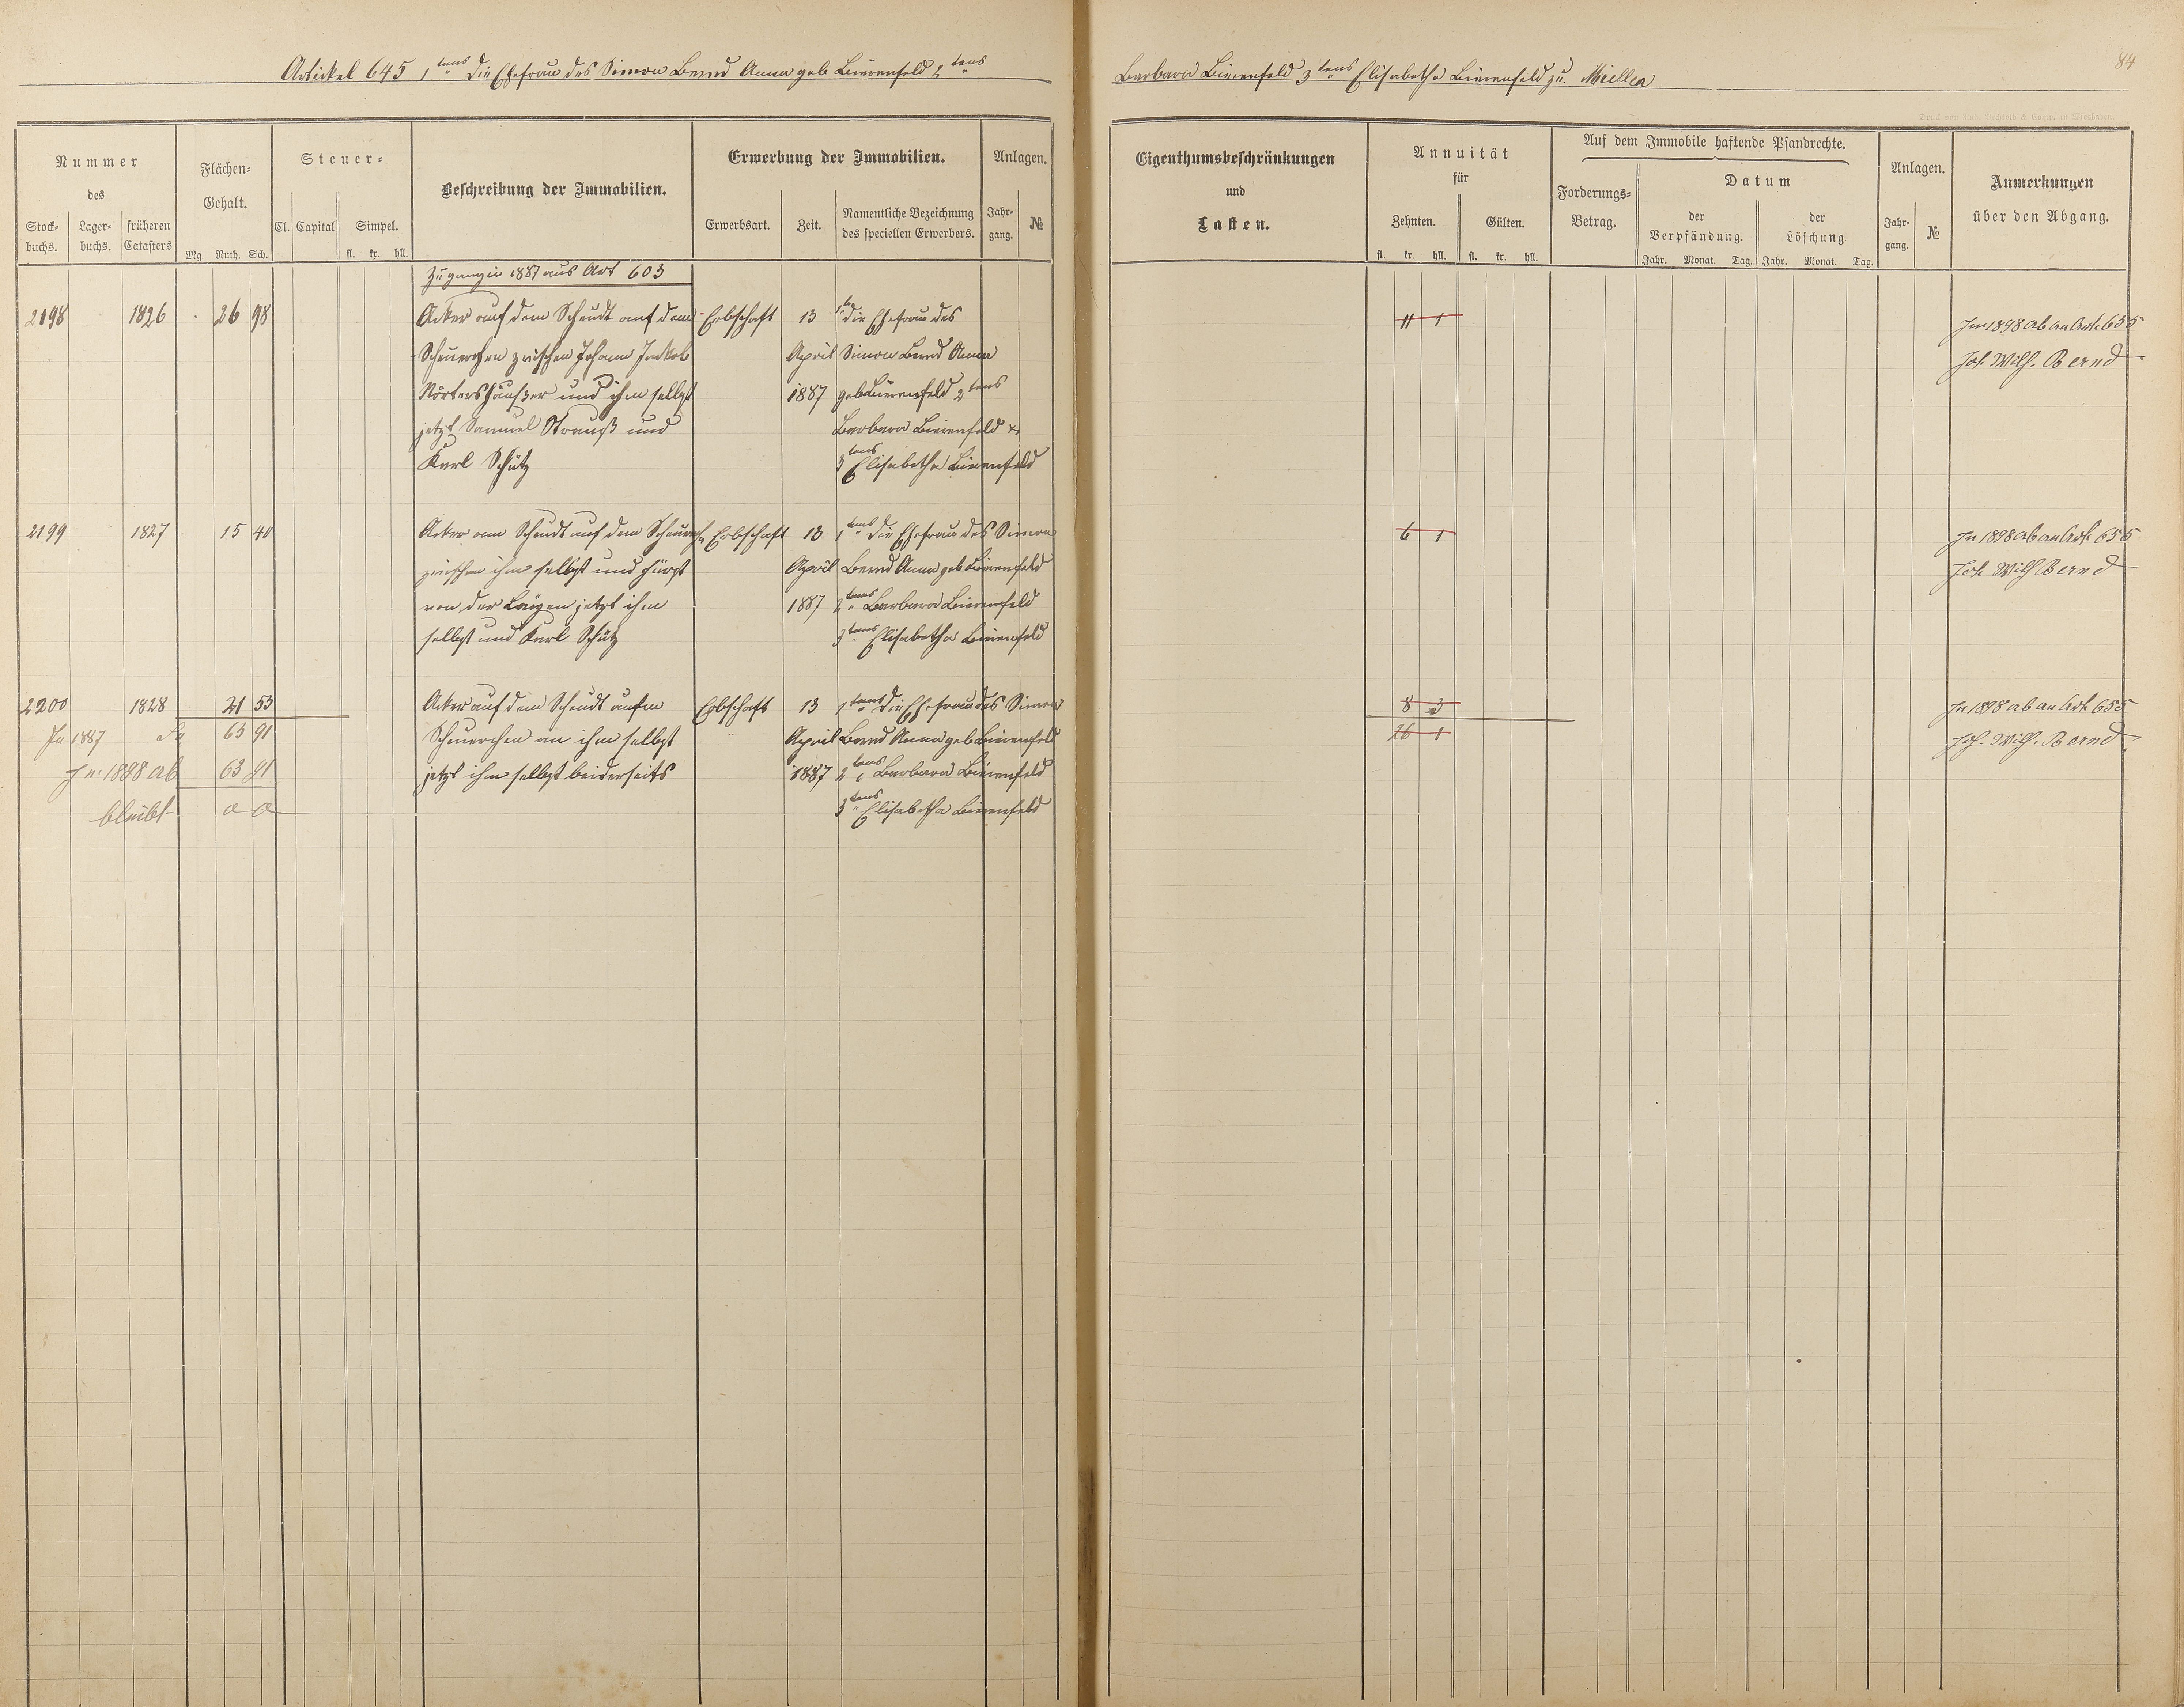 84
Artickel 645 1tens die Ehefrau des Simon Bernd Anna geb Bierenfeld 2tens Barbara Bierenfeld 3tens Elisabetha Bierenfeld zu Miellen
Nummer
des
Stock-
buchs.
Lager-
buchs.
früheren
Catasters
Flächen-
Gehalt.
Mg. Ruth. Sch.
Steuer-
Cl. Capital Simpel.
fl. kr. hll.
Beschreibung der Immobilien.
Erwerbung der Immobilien.
Erwerbsart. Zeit.
Namentliche Bezeichnung
des speciellen Erwerbers.
Anlagen.
Jahr-
gang.
№
Eigenthumsbeschränkungen
und
Lasten.
Annuität
für
Zehnten. Gülten.
fl. kr. hll. fl. kr. hll.
Auf dem Immobile haftende Pfandrechte.
Forderungs-
Betrag.
Datum
der
Verpfändung.
der
Löschung.
Jahr. Monat. Tag. Jahr. Monat. Tag.
Anlagen.
Jahr-
gang.
№
Anmerkungen
über den Abgang.
Zugang in 1887 aus Art 603
2198 1826 26 98 Acker auf dem Scheudt auf dem Erbschaft 13 die Ehefrau des 11 1
Scheuerchen zwischen Johann Jakob April Simon Bernd Anna
Nörtershäußer und ihm selbst 1887 geb Bierenfeld 2tens
jetzt Samuel Strauß und Barbara Bierenfeld
Karl Schütz 3tens Elisabetha Bierenfeld
In 1898 ab an Art. 655
Joh. Wilh. Bernd
2199 1827 15 40 Acker am Scheudt auf dem Erbschaft 13 1tens die Ehefrau des Simon 6 1
zwischen ihm selbst und Fürst April Bernd Anna geb Bierenfeld
von der Leyen jetzt ihm 1887 2tens Barbara Bierenfeld
selbst und Karl Schütz 3tens Elisabetha Bierenfeld
In 1898 ab an Art. 655
Joh. Wilh Bernd
2200 1828 21 53 Acker auf dem Scheudt aufm Erbschaft 13 1tens die Ehefrau des Simon 8 3
In 1887 63 91 Scheuerchen an ihm selbst April Bernd Anna geb Bierenfeld 26 1
In 1898 ab 63 91 jetzt ihm selbst beiderseits 1887 2tens Barbara Bierenfeld
bleibt 0 0 3tens Elisabetha Bierenfeld
In 1898 ab an Art. 655
Joh. Wilh. Bernd